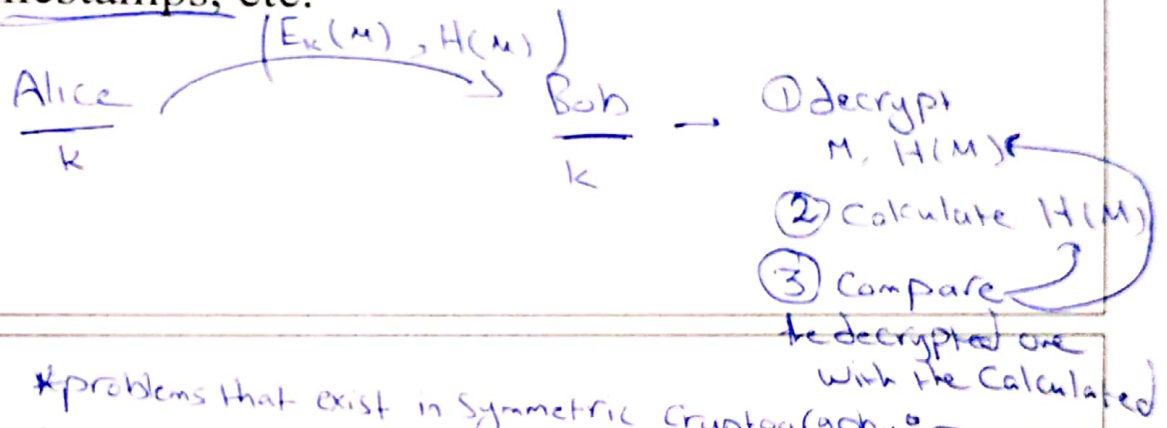 etc.
(E_K(M), H(M))
Alice
K
Bob
K
→ ① decrypt
M, H(M)
② Calculate H(M)
③ Compare
the decrypted one
with the Calculated
*problems that exist in Symmetric